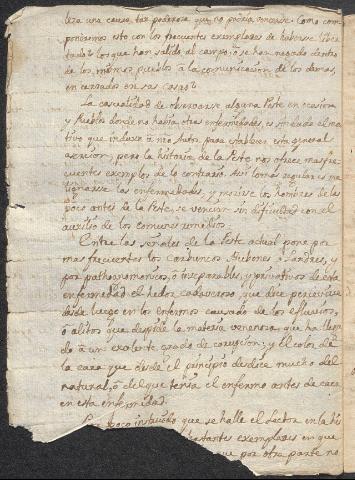 leza una causa tan poderosa que no podria vencerse? Como com-
pondremos esto con los frecuentes exemplares de haberse liber-
tado los que han salido al campo, ó se han negado dentro
de los mismos pueblos à la comunicacion de los demas,
encerrados en sus casas?
La casualidad de observarse alguna Peste en ocasion
y Pueblos donde no habia otras enfermedades, es sin duda el mo-
tivo que induxo à ntro Autor para establecer esta general
asercion; pero la historia de la Peste nos ofrece mas fre-
cuentes exemplos de lo contrario. Asi lo mas regular es ma-
lignarse las enfermedades, y morirse los hombres de las
pocas antes de la Peste, se vencian sin dificultad con el
auxilio de los comunes remedios.
Entre las señales de la Peste actual pone por
mas frecuentes los Carbuncos, Bubones ò Landres, y
por pathognomonicos, ó inseparables, y privativos de esta
enfermedad el hedor cadaveroso, que dice percibirse
desde luego en los enfermos causado de los efluvios,
ò alitos que despide la materia venenosa que ha llega-
do à un exaltante grado de corrupcion; y el color de
la cara que desde el principio desdice mucho del
natural, ò del que tenia el enfermo antes de caer
en esta enfermedad.
Por poco instruido que se halle el Lector en la his
bastantes exemplares en que
que por otra parte no